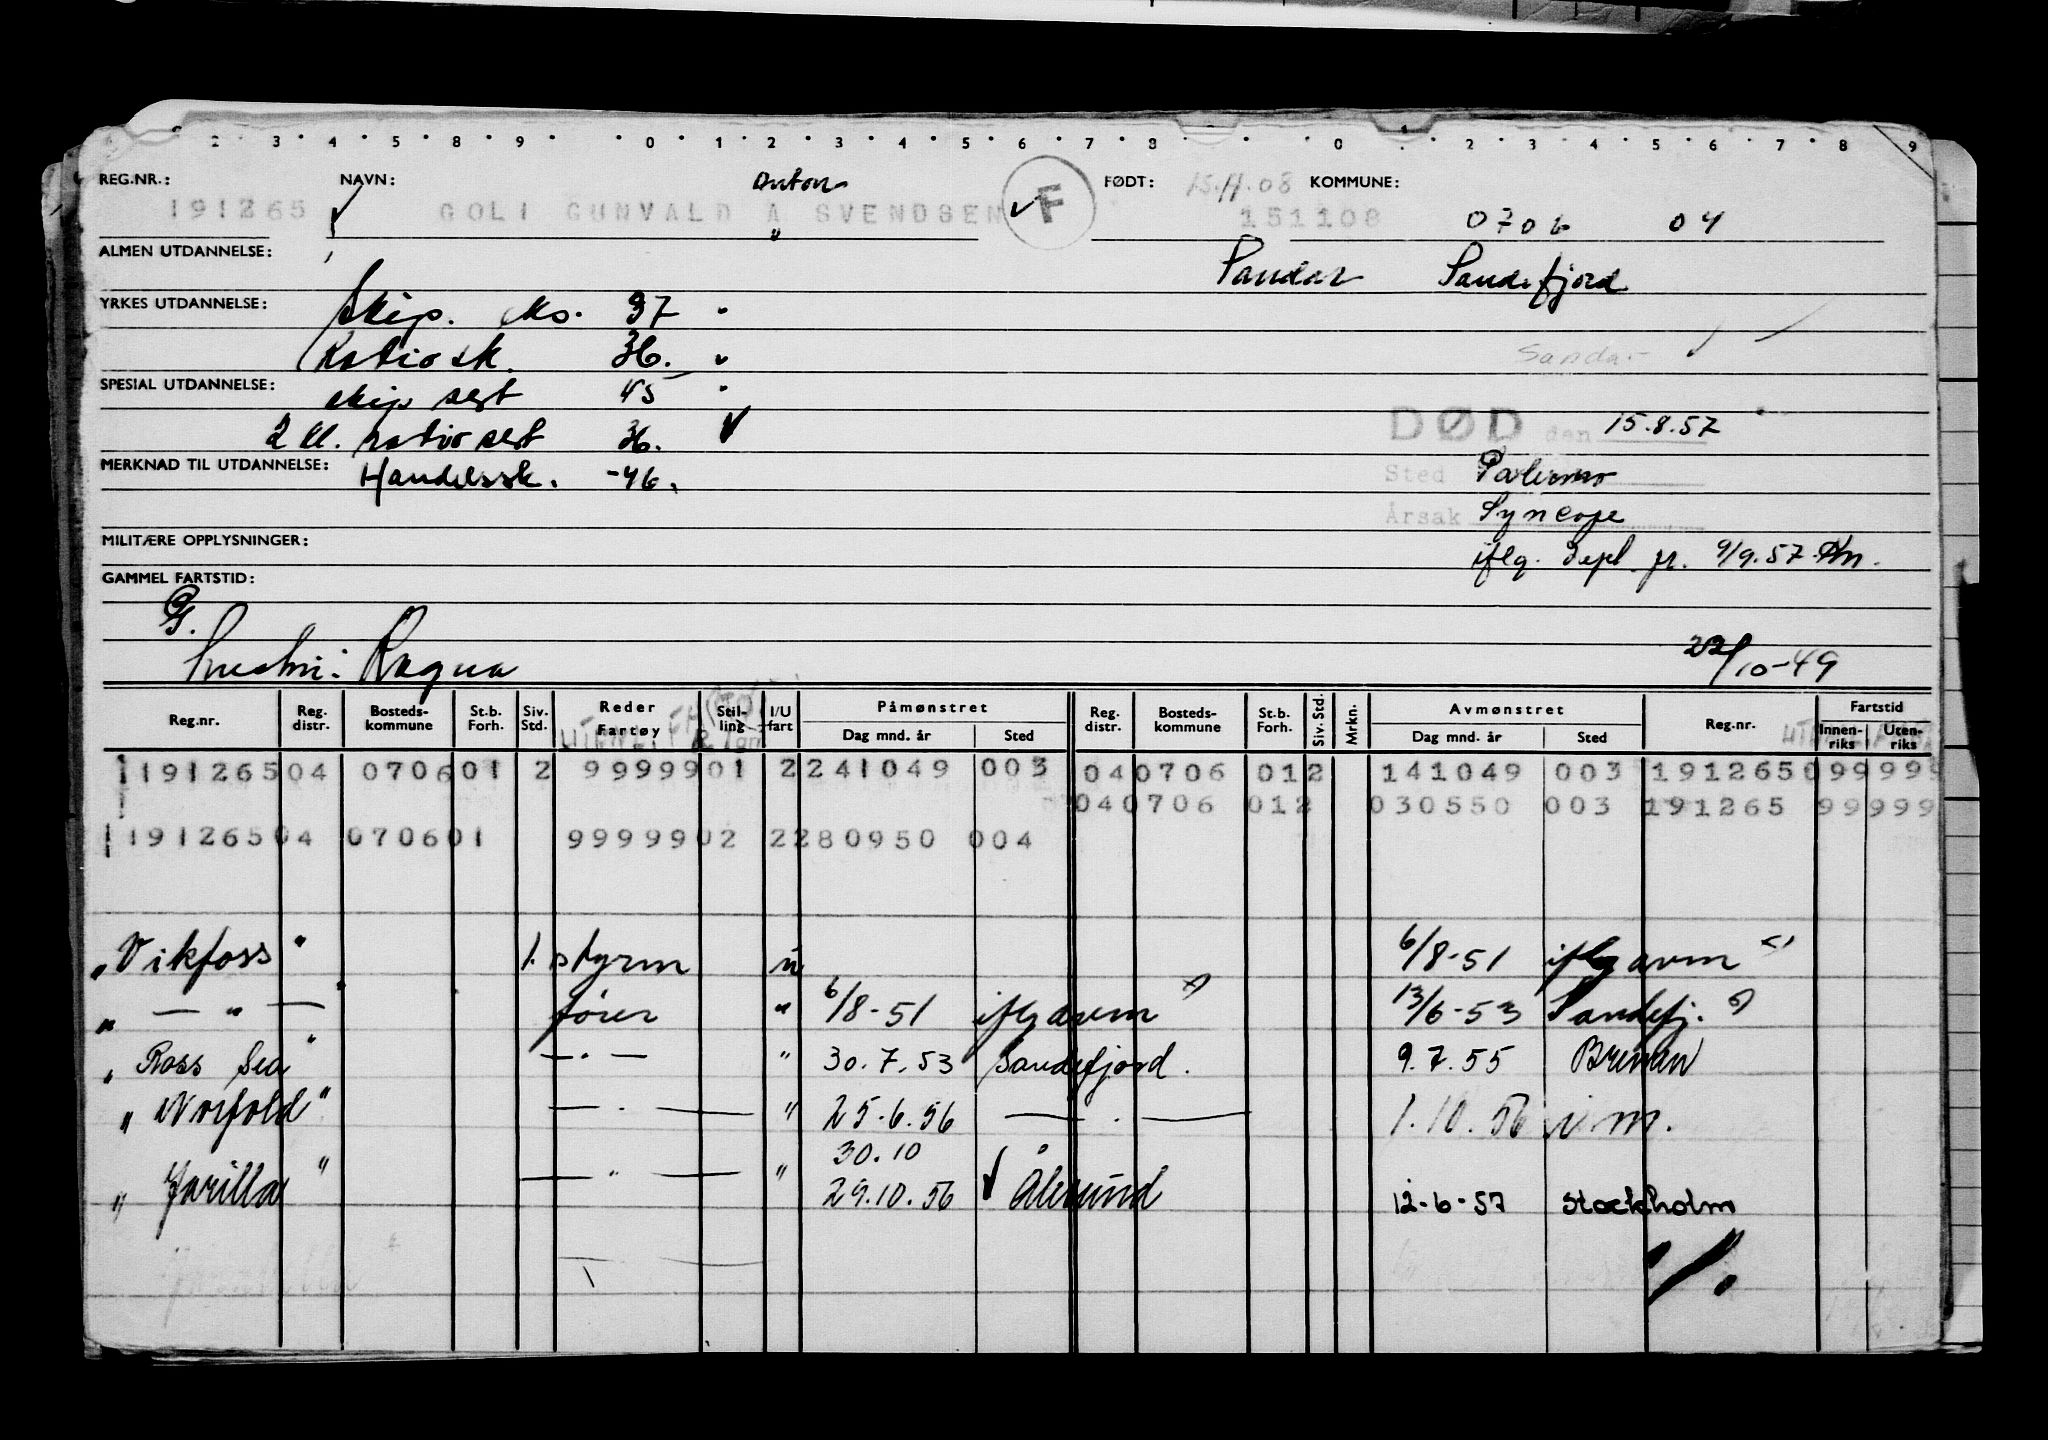 2 3 4 5 8 9 0 1 2 3 4 5 6 7 8 0 2 3 4 5 6 7 8 9
REG.NR.: NAVN: Anton FØDT: 15.11.08 KOMMUNE:
191265 GOLI GUNVALD A SVENDSEN F 151108 0706 04
ALMEN UTDANNELSE: Sandar Sandefjord
YRKES UTDANNELSE: Skip. eks. 37
Radio sk. 36. Sandar
SPESIAL UTDANNELSE: skip sert 45
2 kl. radio sert 36. DØD den 15.8.57
MERKNAD TIL UTDANNELSE: Handelssk. -46. Sted Palermo
Årsak Syncope
MILITÆRE OPPLYSNINGER: iflg. Depl. fr. 9/9.57
GAMMEL FARTSTID:
G.
hustru: Ragna 22/10-49
Reg.nr. Reg. distr. Bosteds- kommune St.b. Forh. Siv. Std. Reder Fartøy Stil- ling I/U fart Påmønstret Dag mnd. år Sted Reg. distr. Bosteds- kommune St.b. Forh. Siv. Std. Mrkn. Avmønstret Dag mnd. år Sted Reg.nr. Fartstid Innen- riks Uten- riks
191265 04 0706 01 2 99999 01 2 241049 003 04 0706 01 2 141049 003 191265 099999
04 0706 01 2 030550 003 191265 99999
191265 04 0706 01 99999 02 2 280950 004
"Vikfoss" 1. styrm u 6/8-51 iflg avm
" — " — fører " 6/8-51 iflg avm 13/6-53 Sandefj.
"Ross Sea" — " — " 30.7.53 Sandefjord. 9.7.55 Bremen
"Norfold" — " — " 25.6.56 — " — 1.10.56 i.m.
30.10
"Jarilla" — " — " 29.10.56 Ålesund 12-6-57 Stockholm